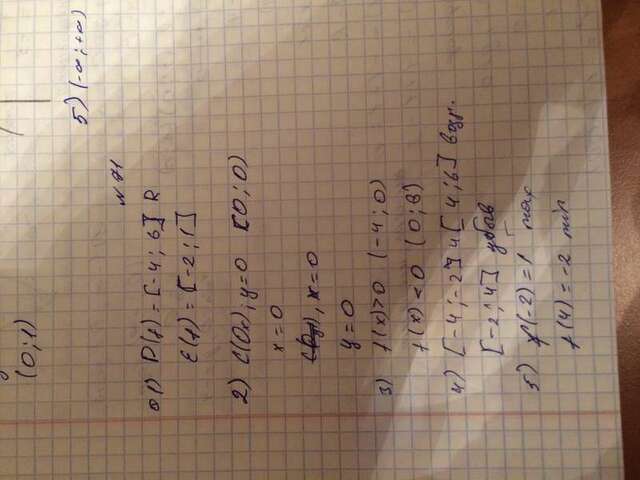 (0;1)
5) (-∞;+∞)
№71
1) D(f)=[-4;6] R
E(f)=[-2;1]
2) C(Ox), y=0 (0;0)
x=0
x=0
y=0
3) f(x)>0 (-4;0)
f(x)<0 (0;6)
4) [-4;-2] и [4;6] возр.
[-2;4] убыв
5) f(-2)=1 max
f(4)=-2 min